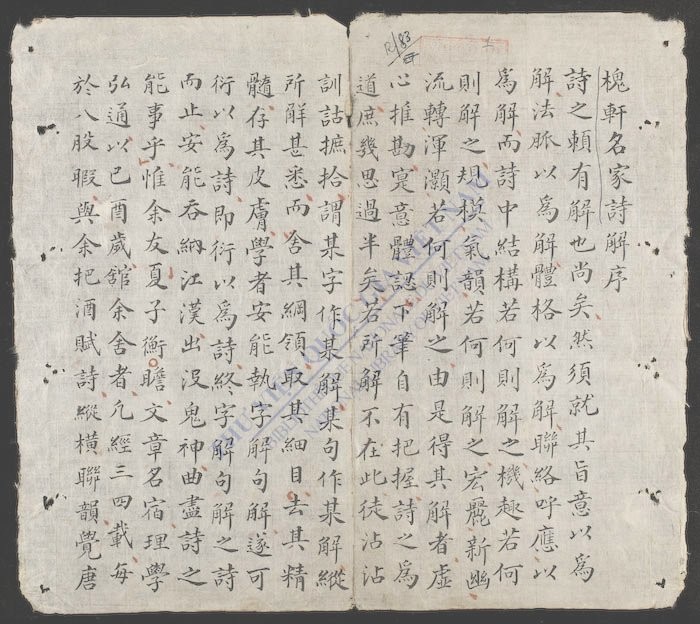 槐軒名家詩解序
詩之頼有解也尚矣然須就其旨意以爲
解法脈以爲解體格以爲解聯絡呼應以
爲解而詩中結構若何則解之機趣若何
則解之規模氣韻若何則解之宏麗新幽
流轉渾灝若何則解之由是得其解者虚
心推勘寔意體認下筆自有把握詩之爲
道庶幾思過半矣若所解不在此徒沾沾
訓詁摭拾謂某字作某解某句作某解縱
所解甚悉而舍其綱領取其細目去其精
髓存其皮膚學者安能執字解句解遂可
衍以爲詩即衍以爲詩終字解句解之詩
而止安能吞納江漢出没鬼神曲盡詩之
能事乎惟余友夏子衡瞻文章名宿理學
弘通以己酉歲舘余舍者凢經三四載每
於八股暇與余把酒賦詩縱横聯韻覺唐
R/83
THƯ VIỆN QUỐC GIA VIỆT NAM
BIBLIOTHÈQUE NATIONALE DU VIETNAM
NATIONAL LIBRARY OF VIETNAM